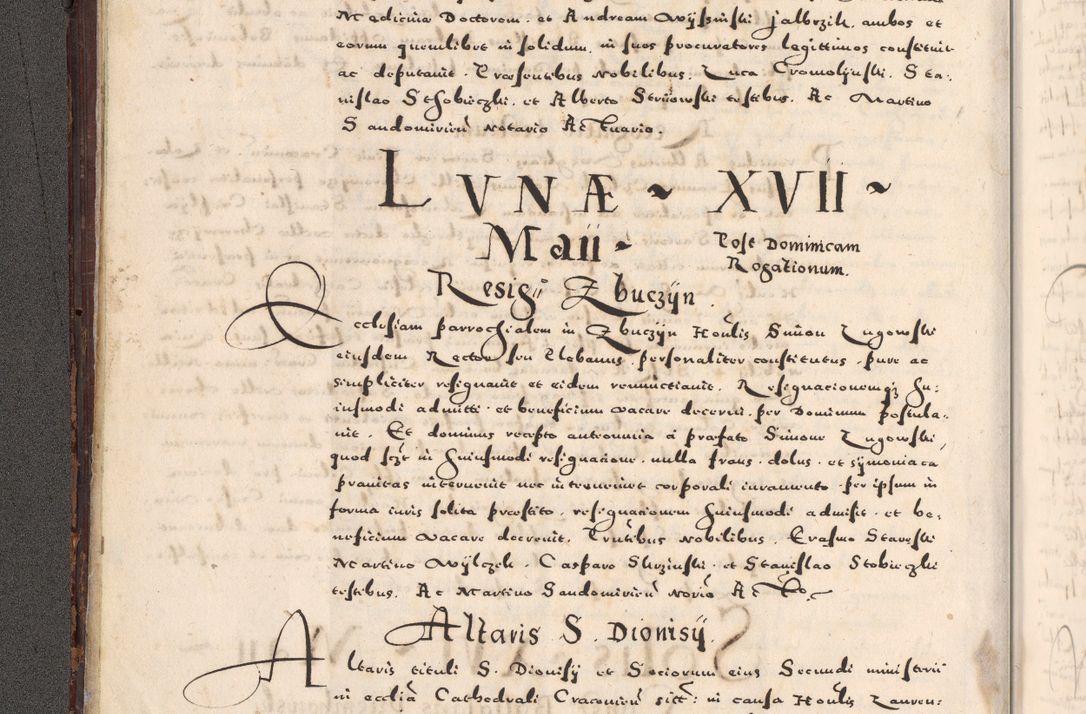 Medicina Doctorem, et Andream Wysinski jalbrzik, ambos et
eorum quemlibet in solidum, in suos procuratores legittimos constituit
ac deputavit. Præsentibus Nobilibus, Luca Cromolynski, Sta-
nislao Sthobieczki, et Alberto Strijowski testibus. Ac Martino
Sandomirien Notario Actuario.
LVNÆ ~ XVII ~
Maii ~ Post Dominicam
Rogationum.
Resig Zbuczÿn.
Ecclesiam parrochialem in Zbuczÿn Honlis Simon Lugowski
eiusdem Rector seu Plebanus, personaliter constitutus, pure ac
simpliciter resignavit et eidem renunctiavit. Resignacionemq hu-
iusmodi admitti, et beneficium vacare decerni, per Dominum postula-
vit. Et dominus recepto antemnia à præfato Simone Lugowski,
quod scz in huiusmodi resignatione, nulla fraus, dolus, et sÿmoniaca
pravitas intervenit nec interveniet corporali iuramento, per ipsum in
forma iuris solita præstito, resignationem huiusmodi admisit, et be-
neficium vacare decrevit. Pntibus Nobilibus, Erasmo Stareski
Martino Wÿlczek, Casparo Skrzinski, et Stanislao Stobieczki
testibus. Ac Martino Sandomirien Norio Acto.
Altaris S. Dionisÿ.
Altaris tituli S. Dionisÿ et Sociorum eius Secundi ministerii
in ecclia Cathedrali Cracovien sitt: in causa Honlis Lauren-